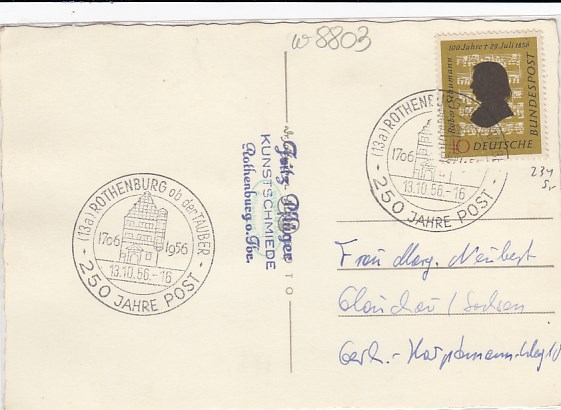 w 8803
100. Jahre † 29. Juli 1856
Robert Schumann
BUNDESPOST
10 DEUTSCHE
(13a) ROTHENBURG
1706
13.10.56.-16
- 250 JAHRE POST -
234
(13a) ROTHENBURG ob der TAUBER
1706 1956
13.10.56.-16
- 250 JAHRE POST -
Fritz Pflüger
KUNSTSCHMIEDE
Rothenburg o. Tbr.
Frau Marg. Neubert
Glauchau / Sachsen
Gerh.-Hauptmann-Weg 10